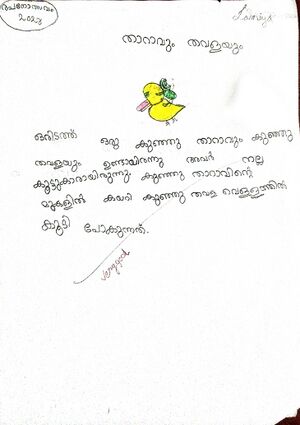 രചനോത്സവം
2023
താറാവും തവളയും
ഒരിടത്ത് ഒരു കുഞ്ഞു താറാവും കുഞ്ഞു
തവളയും ഉണ്ടായിരുന്നു അവർ നല്ല
കൂട്ടുകാരായിരുന്നു. കുഞ്ഞു താറാവിന്റെ
മുകളിൽ കയറി കുഞ്ഞു തവള വെള്ളത്തിൽ
കൂടി പോകുന്നത്.